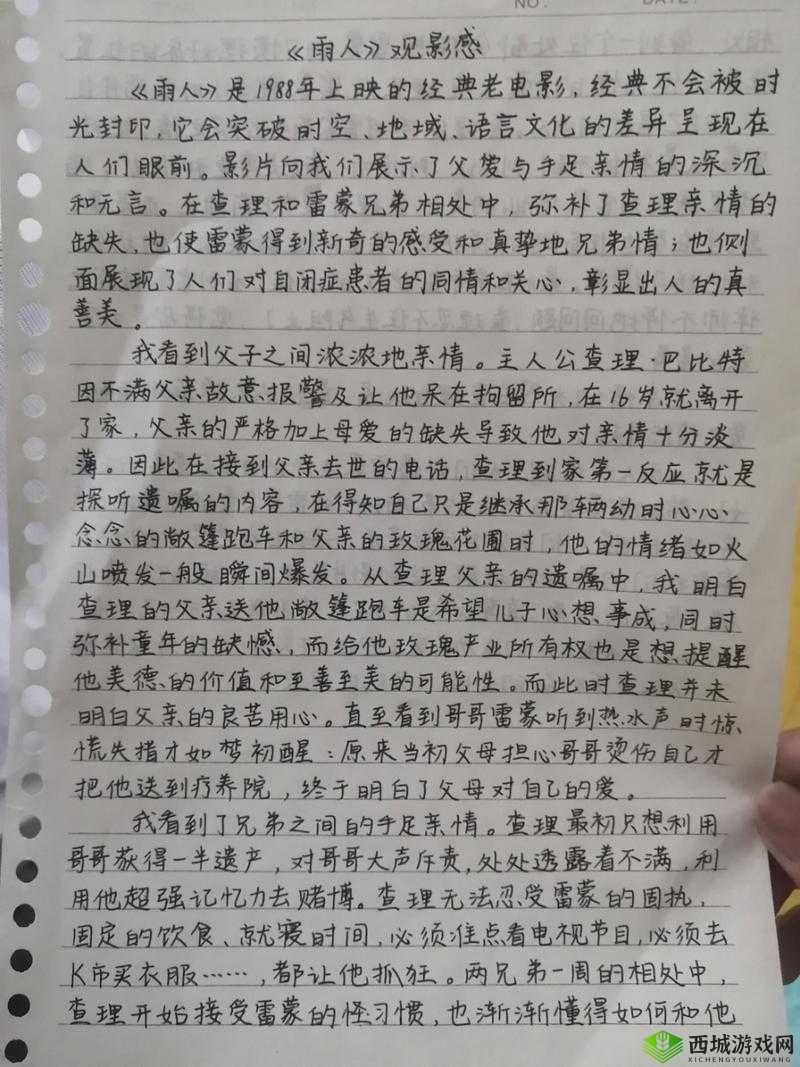 NO. DATE.
《雨人》观影感
《雨人》是1988年上映的经典老电影,经典不会被时
光封印,它会突破时空、地域、语言文化的差异呈现在
人们眼前。影片向我们展示了父爱与手足亲情的深沉
和无言。在查理和雷蒙兄弟相处中,弥补了查理亲情的
缺失,也使雷蒙得到新奇的感受和真挚地兄弟情;也侧
面展现了人们对自闭症患者的同情和关心,彰显出人的真
善美。
我看到父子之间浓浓地亲情。主人公查理·巴比特
因不满父亲故意报警及让他呆在拘留所,在16岁就离开
了家,父亲的严格加上母爱的缺失导致他对亲情十分淡
薄。因此在接到父亲去世的电话,查理到家第一反应就是
探听遗嘱的内容,在得知自己只是继承那辆幼时心心
念念的敞篷跑车和父亲的玫瑰花圃时,他的情绪如火
山喷发一般瞬间爆发。从查理父亲的遗嘱中,我明白
查理的父亲送他敞篷跑车是希望儿子心想事成,同时
弥补童年的缺憾,而给他玫瑰产业所有权也是想提醒
他美德的价值和至善至美的可能性。而此时查理并未
明白父亲的良苦用心。直至看到哥哥雷蒙听到热水声时惊
慌失措才如梦初醒:原来当初父母担心哥哥烫伤自己才
把他送到疗养院,终于明白了父母对自己的爱。
我看到了兄弟之间的手足亲情。查理最初只想利用
哥哥获得一半遗产,对哥哥大声斥责,处处透露着不满,利
用他超强记忆力去赌博。查理无法忍受雷蒙的固执,
固定的饮食、就寝时间,必须准点看电视节目,必须去
K市买衣服……,都让他抓狂。两兄弟一周的相处中,
查理开始接受雷蒙的怪习惯,也渐渐懂得如何和他
西城游戏网
XICHENGYOUXIWANG